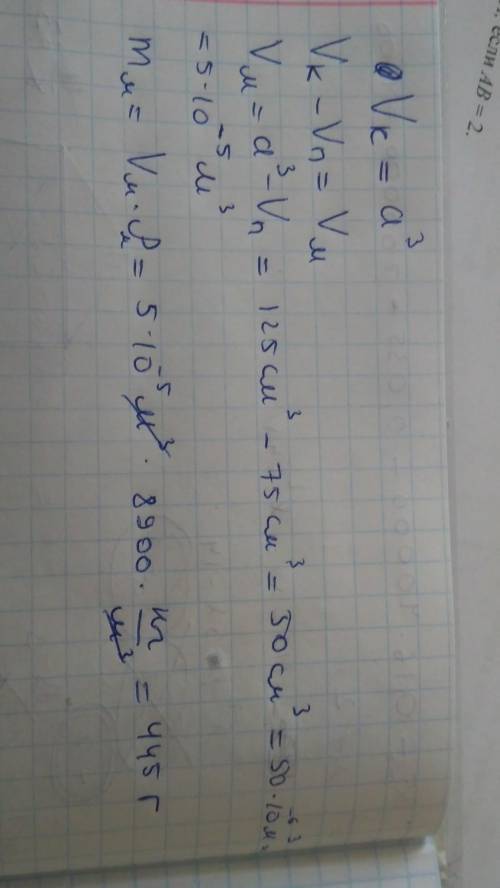 если AB = 2.
V_к = a³
V_к − V_п = V_м
V_м = a³ − V_п = 125 см³ − 75 см³ = 50 см³ = 50·10⁻⁶ м³
= 5·10⁻⁵ м³
m_м = V_м · ρ_м = 5·10⁻⁵ м³ · 8900 · кг/м³ = 445 г